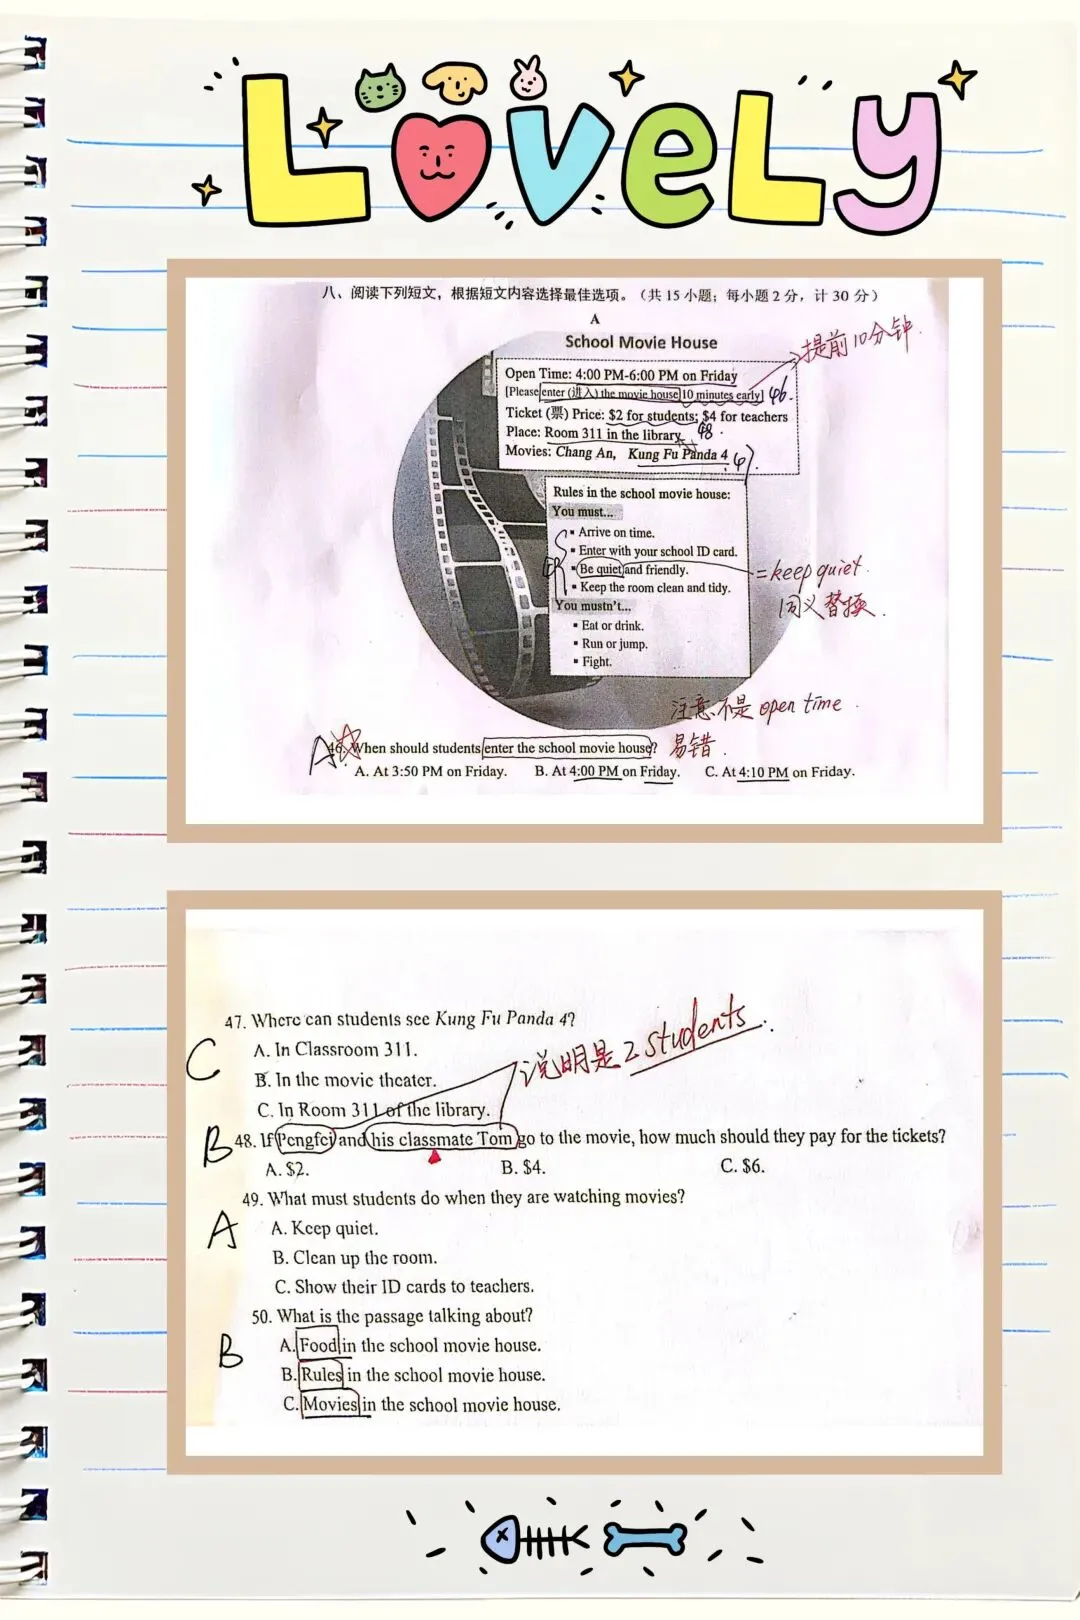 LOVELY
八、阅读下列短文，根据短文内容选择最佳选项。（共 15 小题；每小题 2 分，计 30 分）
A
School Movie House
提前10分钟.
Open Time: 4:00 PM-6:00 PM on Friday
[Please enter (进入) the movie house 10 minutes early] 46.
Ticket (票) Price: $2 for students; $4 for teachers
48.
Place: Room 311 in the library
Movies: Chang An, Kung Fu Panda 4
47.
Rules in the school movie house:
You must...
▪ Arrive on time.
▪ Enter with your school ID card.
▪ Be quiet and friendly.
= keep quiet.
同义替换.
▪ Keep the room clean and tidy.
You mustn't...
▪ Eat or drink.
▪ Run or jump.
▪ Fight.
注意不是 open time.
易错.
A
46. When should students enter the school movie house?
A. At 3:50 PM on Friday. B. At 4:00 PM on Friday. C. At 4:10 PM on Friday.
47. Where can students see Kung Fu Panda 4?
C
A. In Classroom 311.
B. In the movie theater.
C. In Room 311 of the library.
说明是 2 students.
B
48. If Pengfei and his classmate Tom go to the movie, how much should they pay for the tickets?
A. $2. B. $4. C. $6.
49. What must students do when they are watching movies?
A
A. Keep quiet.
B. Clean up the room.
C. Show their ID cards to teachers.
50. What is the passage talking about?
B
A. Food in the school movie house.
B. Rules in the school movie house.
C. Movies in the school movie house.